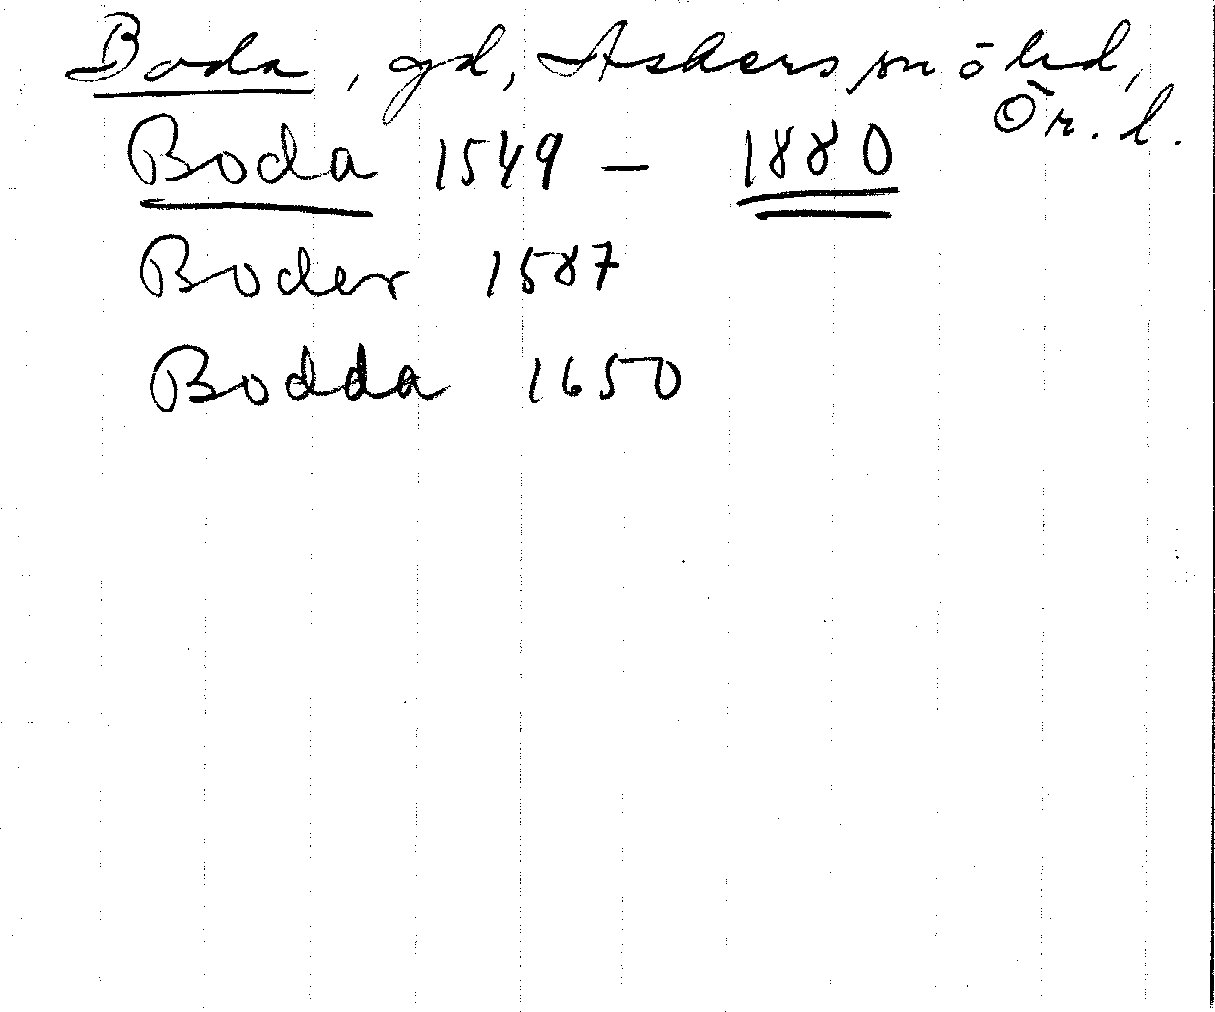 Boda, gd, Askers sn ö hd,
Ör. l.
Boda 1549 – 1880
Boder 1587
Bodda 1650